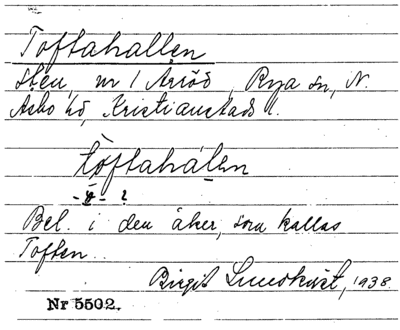 Toftahallen
sten, nr 1 Ariöd, Rya sn, N.
Asbo hd, Kristianstads l.
tòftahàlen
Bel. i den åker, som kallas
Toften.
Birgit Lundkvist, 1938.
Nr 5502.